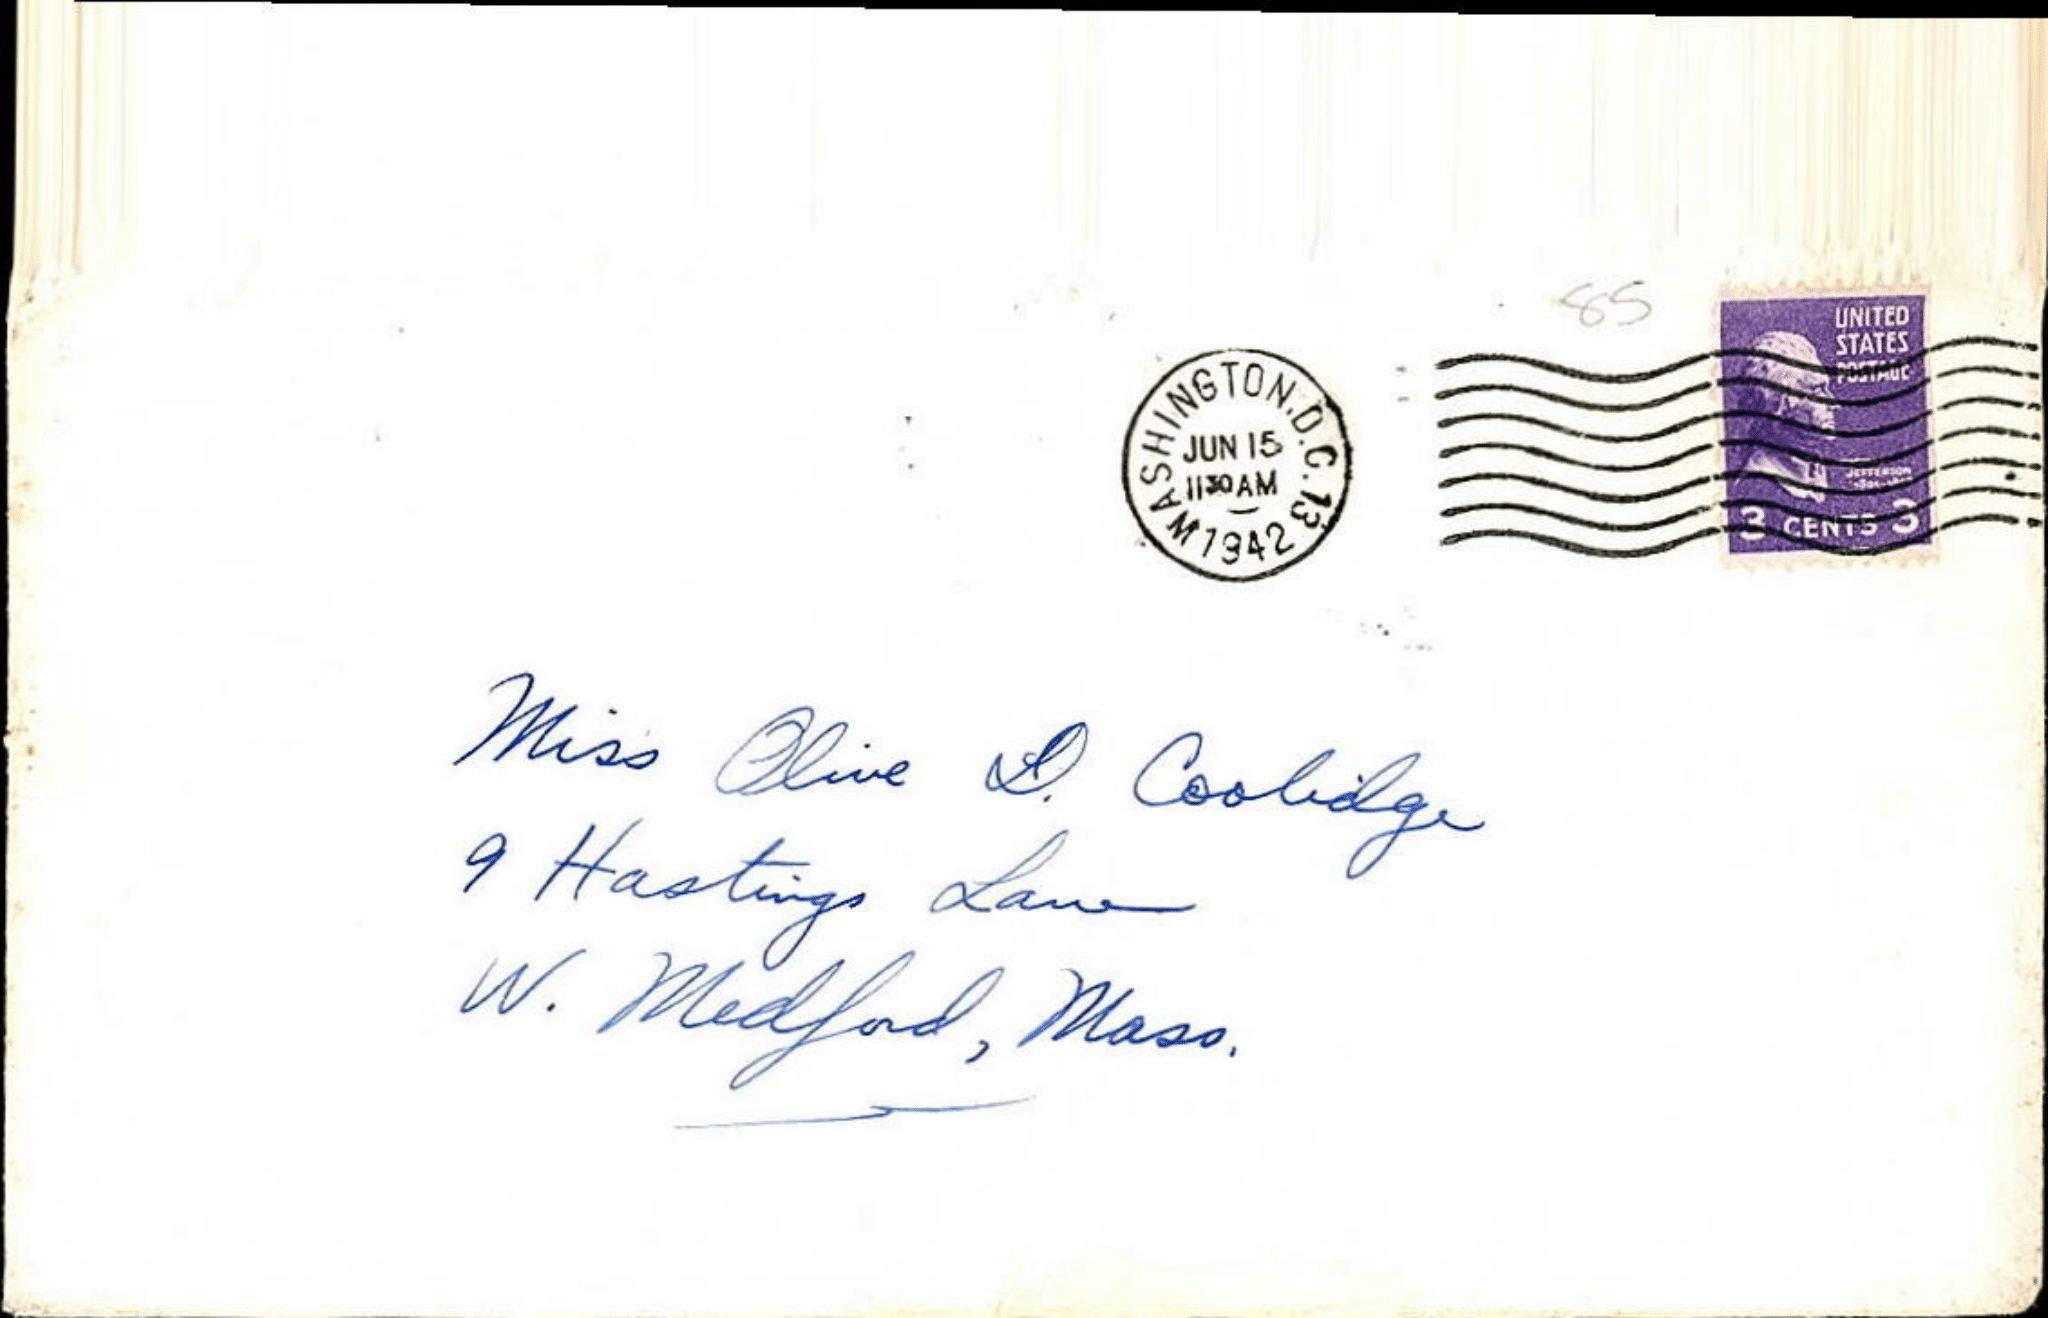 85
UNITED
STATES
POSTAGE
JEFFERSON
3 CENTS 3
WASHINGTON, D.C. 13
JUN 15
11 30 AM
1942
Miss Olive D. Coolidge
9 Hastings Lane
W. Medford, Mass.